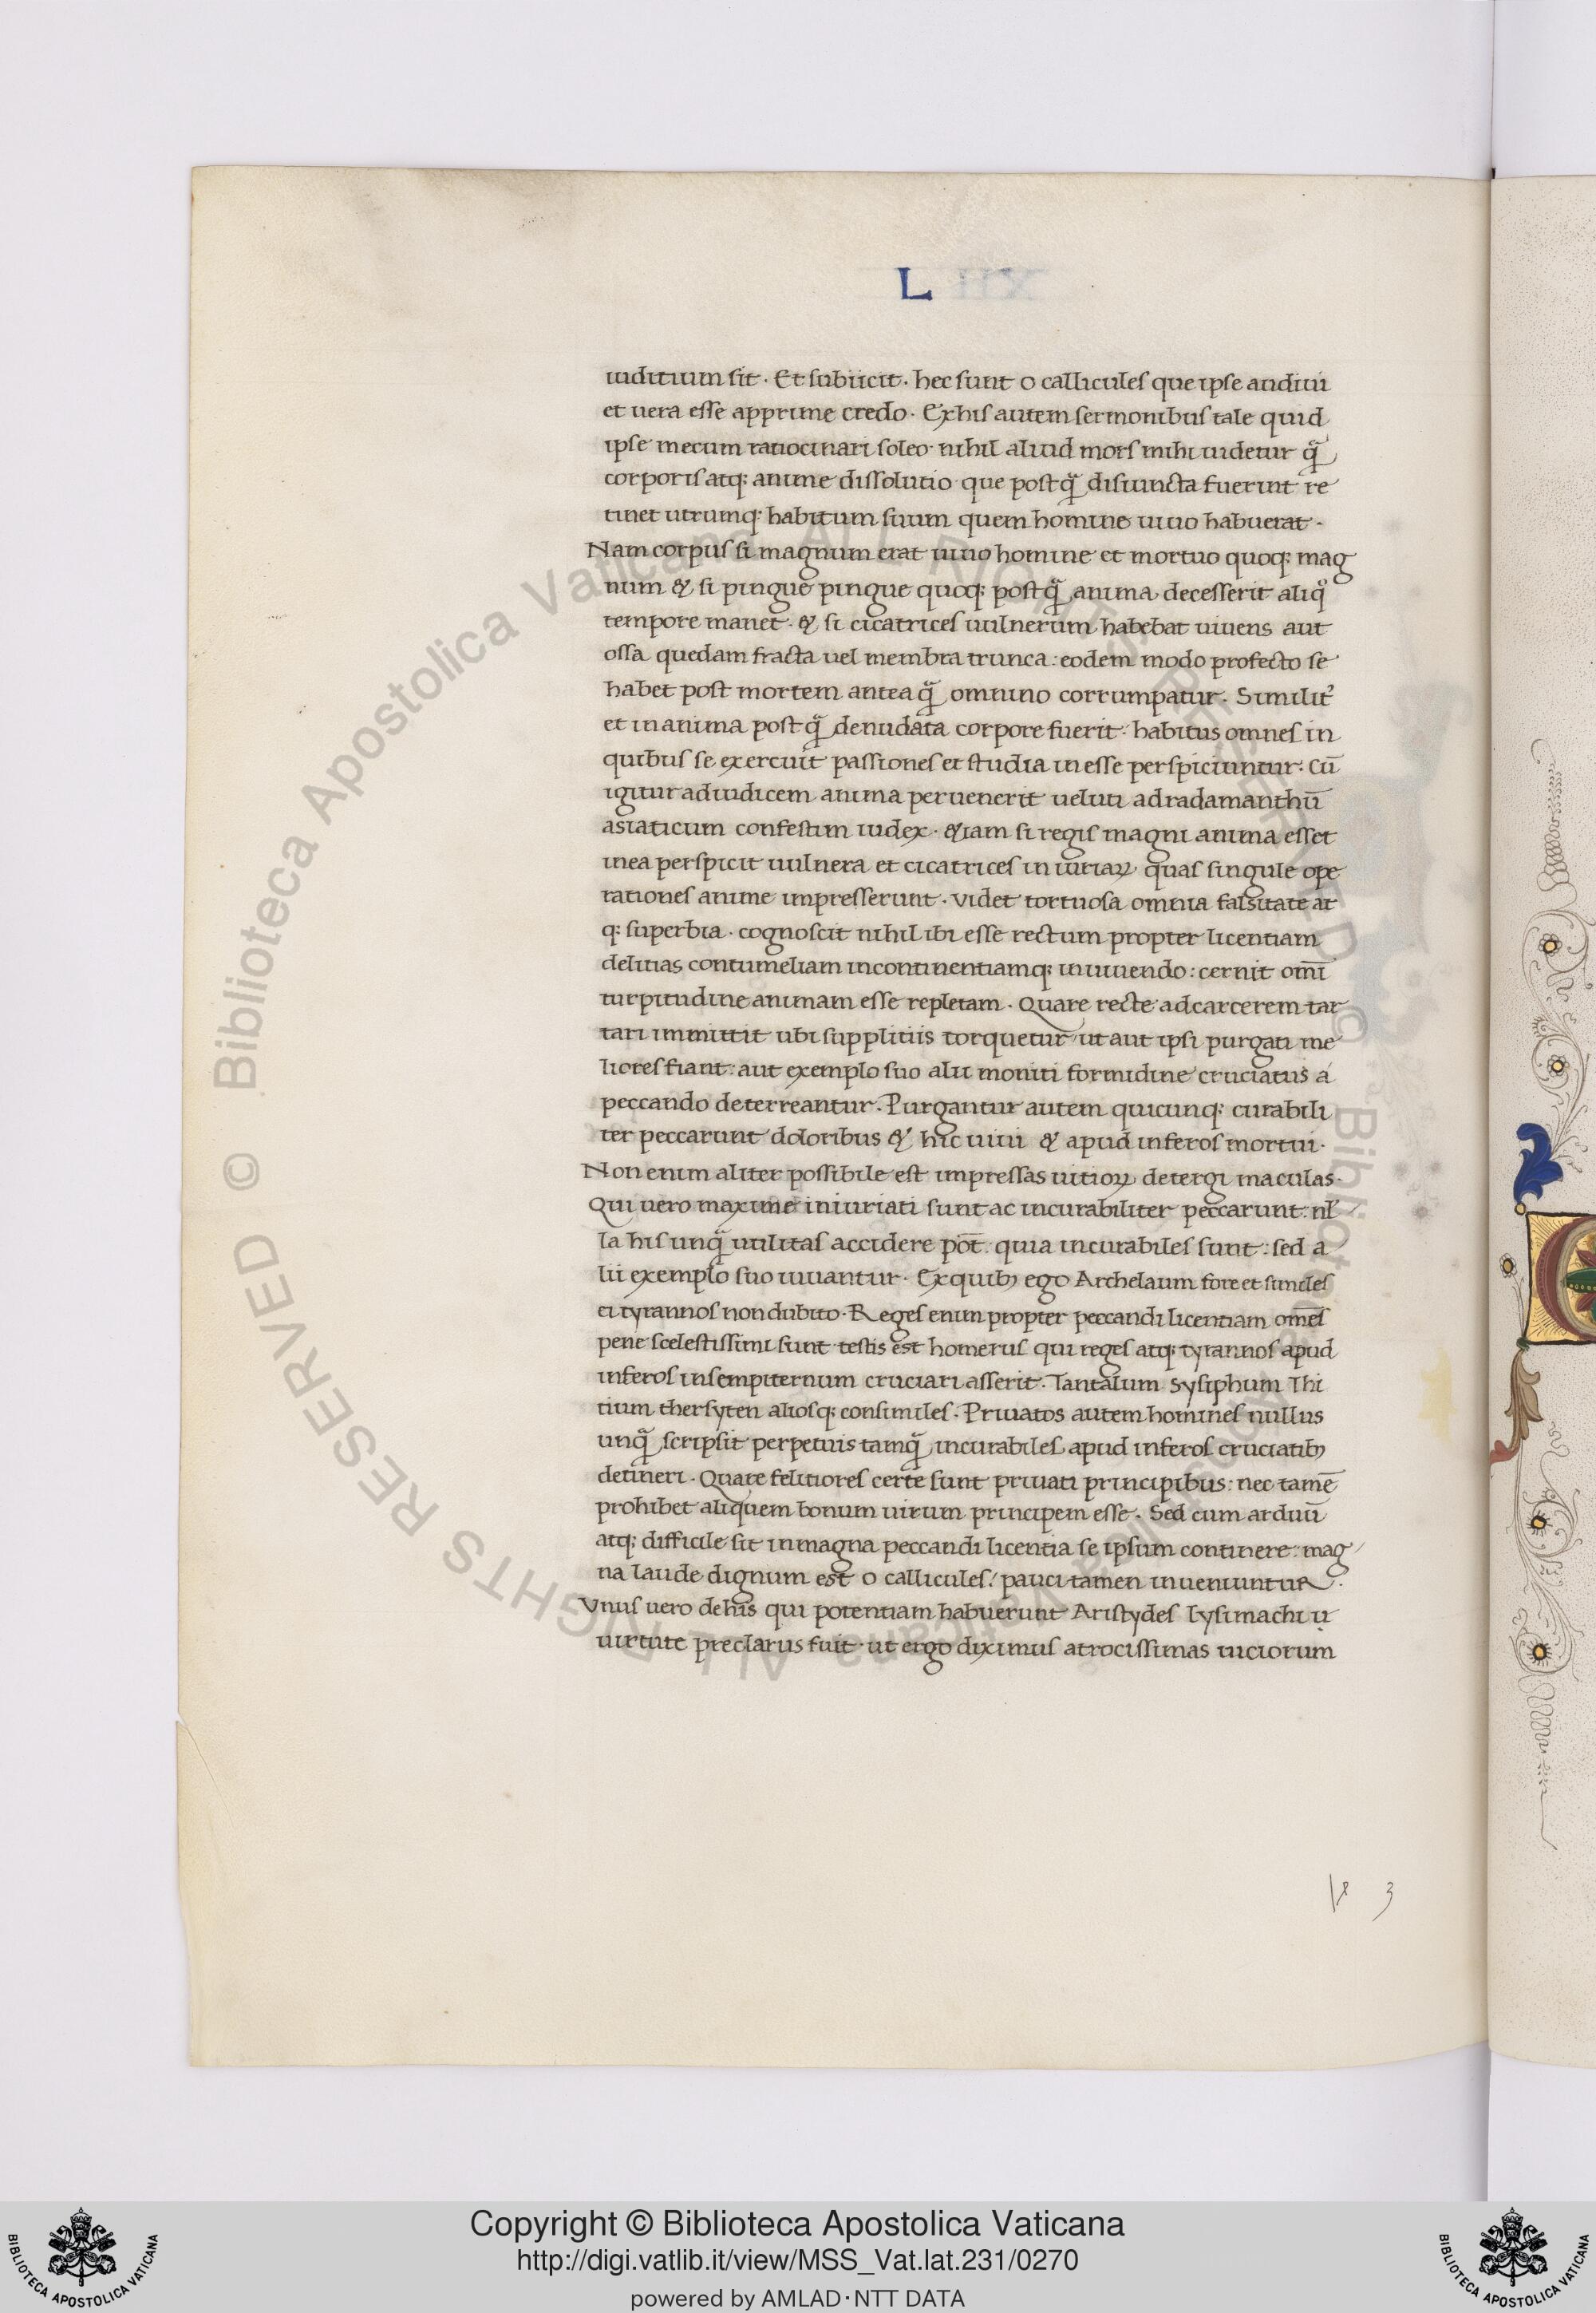 L
iuditium sit · Et subiicit · hec sunt o callicules que ipse audiui
et uera esse apprime credo · Ex his autem sermonibus tale quid
ipse mecum ratiocinari soleo · nihil aliud mors mihi uidetur q̃
corporis atq; anime dissolutio que postq̃ disiuncta fuerint re
tinet utrumq; habitum suum quem homine uiuo habuerat ·
Nam corpus si magnum erat uiuo homine et mortuo quoq; mag
num & si pingue pingue quoq; postq̃ anima decesserit aliqͦ
tempore manet · & si cicatrices uulnerum habebat uiuens aut
ossa quedam fracta uel membra trunca : eodem modo profecto se
habet post mortem anteaq̃ omnino corrumpatur · Similit᷑
et in anima postq̃ denudata corpore fuerit · habitus omnes in
quibus se exercuit passiones et studia inesse perspiciuntur · Cū
igitur ad iudicem anima peruenerit ueluti ad radamanthū
asiaticum confestim iudex · &iam si regis magni anima esset
in ea perspicit uulnera et cicatrices iniuriaꝝ quas singule ope
rationes anime impresserunt · Videt tortuosa omnia falsitate at
q; superbia · cognoscit nihil ibi esse rectum propter licentiam
delitias contumeliam incontinentiamq; in uiuendo : cernit omī
turpitudine animam esse repletam · Quare recte ad carcerem tar
tari immittit ubi supplitiis torquetur ut aut ipsi purgati me
liores fiant : aut exemplo suo alii moniti formidine cruciatus a
peccando deterreantur · Purgantur autem quicunq; curabili
ter peccarunt doloribus & hic uiui & apud inferos mortui ·
Non enim aliter possibile est impressas uitioꝝ detergi maculas ·
Qui uero maxime iniuriati sunt ac incurabiliter peccarunt : nl̄
la his unq̃ utilitas accidere pot̄ · quia incurabiles sunt : sed a
lii exemplo suo iuuantur · Ex quibꝫ ego Archelaum fore et similes
ei tyrannos non dubito · Reges enim propter peccandi licentiam om̄es
pene scelestissimi sunt testis est homerus qui reges atq; tyrannos apud
inferos in sempiternum cruciari asserit · Tantalum Sysiphum Thi
tium thersyten aliosq; consimiles · Priuatos autem homines nullus
unq̃ scripsit perpetuis tamq̃ incurabiles apud inferos cruciatibꝫ
detineri · Quare felitiores certe sunt priuati principibus : nec tamē
prohibet aliquem bonum uirum principem esse · Sed cum arduū
atq; difficile sit in magna peccandi licentia se ipsum continere : mag
na laude dignum est o callicules : pauci tamen inueniuntur ·
Vnus uero de his qui potentiam habuerunt Aristydes Lysimachi
uirtute preclarus fuit · ut ergo diximus atrocissimas uiciorum
Copyright © Biblioteca Apostolica Vaticana
http://digi.vatlib.it/view/MSS_Vat.lat.231/0270
powered by AMLAD·NTT DATA
BIBLIOTECA APOSTOLICA VATICANA
BIBLIOTECA APOSTOLICA VATICANA
© Biblioteca Apostolica Vaticana ALL RIGHTS RESERVED
© Biblioteca Apostolica Vaticana ALL RIGHTS RESERVED